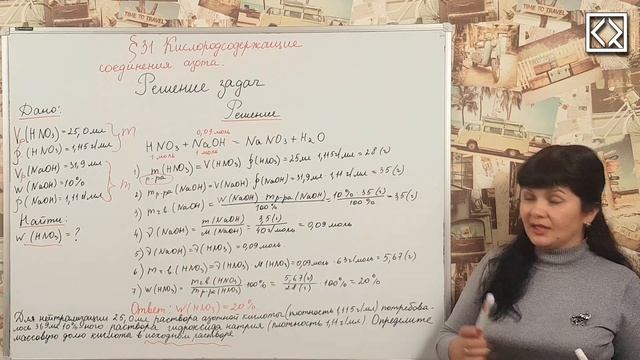 §31 Кислородсодержащие
соединения азота.
Решение задач
Дано:
Vр(HNO₃)=25,0мл
ρ(HNO₃)=1,115г/мл
m
Vр(NaOH)=31,9мл
w(NaOH)=10%
ρ(NaOH)=1,11г/мл
m
Найти:
w(HNO₃)=?
Решение
0,09моль
HNO₃+NaOH=NaNO₃+H₂O
1моль 1моль
1) m(HNO₃)=V(HNO₃)·ρ(HNO₃)=25мл·1,115г/мл=28(г)
р-ра
2) mр-ра(NaOH)=V(NaOH)·ρ(NaOH)=31,9мл·1,11г/мл=35(г)
3) mв-в(NaOH)=w(NaOH)·mр-ра(NaOH)/100%=10%·35(г)/100%=3,5(г)
4) ν(NaOH)=m(NaOH)/M(NaOH)=3,5(г)/40г/моль=0,09моль
5) ν(NaOH)=ν(HNO₃)=0,09моль
6) mв-в(HNO₃)=ν(HNO₃)·M(HNO₃)=0,09моль·63г/моль=5,67(г)
7) w(HNO₃)=mв-в(HNO₃)/mр-ра(HNO₃)·100%=5,67(г)/28(г)·100%=20%
Ответ: w(HNO₃)=20%
Для нейтрализации 25,0мл раствора азотной кислоты (плотность 1,115г/мл) потребова-
лось 31,9мл 10%-ного раствора гидроксида натрия (плотность 1,11г/мл). Определите
массовую долю кислоты в исходном растворе
TIME TO TRAVEL